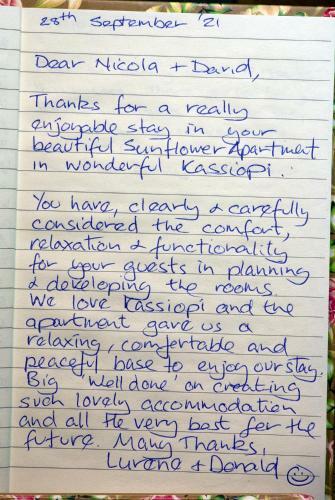 28th September '21
Dear Nicola + David,
Thanks for a really
enjoyable stay in your
beautiful Sunflower Apartment
in wonderful Kassiopi.
You have, clearly & carefully
considered the comfort,
relaxation & functionality
for your guests in planning
& developing the rooms.
We love Kassiopi and the
apartment gave us a
relaxing, comfortable and
peaceful base to enjoy our stay.
Big 'Well done' on creating
such lovely accommodation
and all the very best for the
future. Many Thanks,
Lurene + Donald